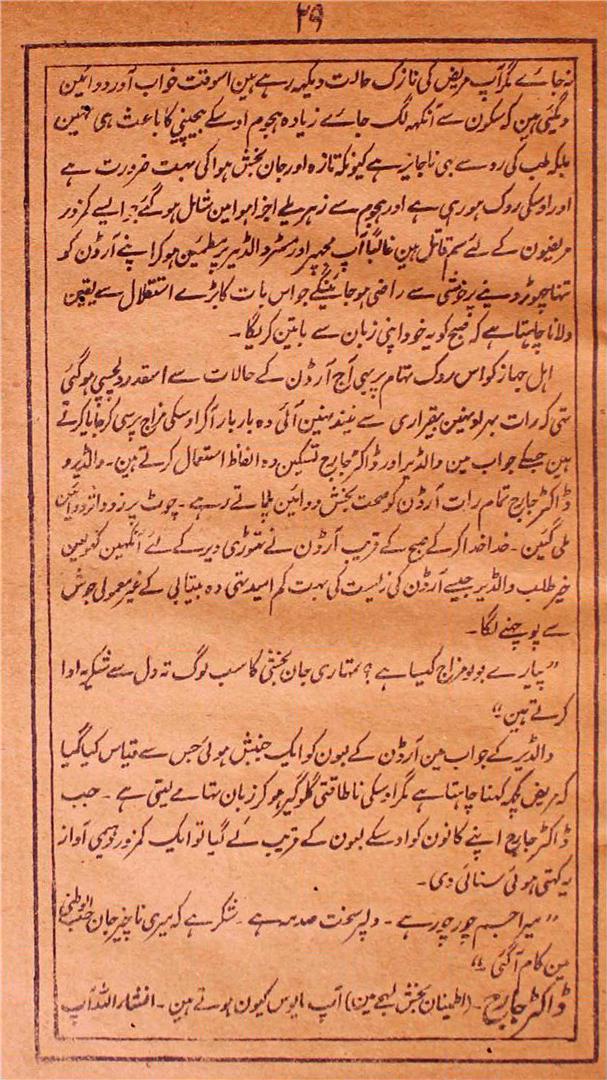 ۲۹
نہ جائے مگر آپ مریض کی نازک حالت دیکھ رہے ہین اسوقت خواب آور دوائین
دیگئی ہین کہ سکون سے آنکہہ لگ جائے زیادہ ہجوم اوسکے بیچینی کا باعث ہی نہین
بلکہ طب کی رو سے بی ناجایز ہے کیونکہ تازہ اور جان بخش ہوا کی بہت ضرورت ہے
اور اوسکی روک ہورہی ہے اور ہجوم سے زہریلے اجزا ہوا مین شامل ہوگئے جو ایسے کمزور
مریضون کے لئے سم قاتل ہین غالباً آپ مجہپر اور مسٹر والڈیر پر مطمئین ہوکر اپنے آرڈن کو
تنہا چہوڑ دینے پر خوشی سے راضی ہوجائینگے جو اس بات کا بڑے استقلال سے یقین
دلانا چاہتا ہے کہ صبح کو یہ خود اپنی زبان سے باتین کریگا۔
اہل جہاز کو اس روک تہام پر بہی آج آرڈن کے حالات سے اسقدر دلچسپی ہوگئی
تہی کہ رات بہر اونہین بیقراری سے نیند نہین آئی وہ بار بار آکر اوسکی مزاج پرسی کرجایا کرتے
ہین جسکے جواب مین والڈیر اور ڈاکٹر جارج تسکین دہ الفاظ استعمال کرتے ہین۔ والڈیر و
ڈاکٹر جارج تمام رات آرڈن کو صحت بخش دوائین پلاتے رہے۔ چوٹ پر زود اثر دوائین
ملی گئین۔ خدا خدا کرکے صبح کے قریب آرڈن نے تہوڑی دیر کے لئے آنکہین کہولین
خیر طلب والڈیر جسے آرڈن کی زلیست کی بہت کم امید تہی وہ بیتابی کے غیر معمولی جوش
سے پوچہنے لگا۔
”پیارے بولو مزاج کیسا ہے؟ تمہاری جان بخشی کا سب لوگ تہ دل سے شکریہ ادا
کرتے ہین“
والڈیر کے جواب مین آرڈن کے لبون کو ایک جنبش ہوئی جس سے قیاس کیا گیا
کہ مریض کچہہ کہنا چاہتا ہے مگر اوسکی ناطاقتی گلوگیر ہو کر زبان تہامے لیتی ہے۔ جب
ڈاکٹر جارج اپنے کانون کو اوسکے لبون کے قریب لے گیا تو ایک کمزور دہیمی آواز
یہ کہتی ہوئی سنائی دی۔
”میرا جسم چور چور ہے۔ دلپر سخت صدمہ ہے۔ شکر ہے کہ میری ناچیز جان حب الوطنی
مین کام آگئی۔“
ڈاکٹر جارج۔ (اطینان بخش لہجے مین) آپ مایوس کیون ہوتے ہین۔ انشاء اللہ آپ